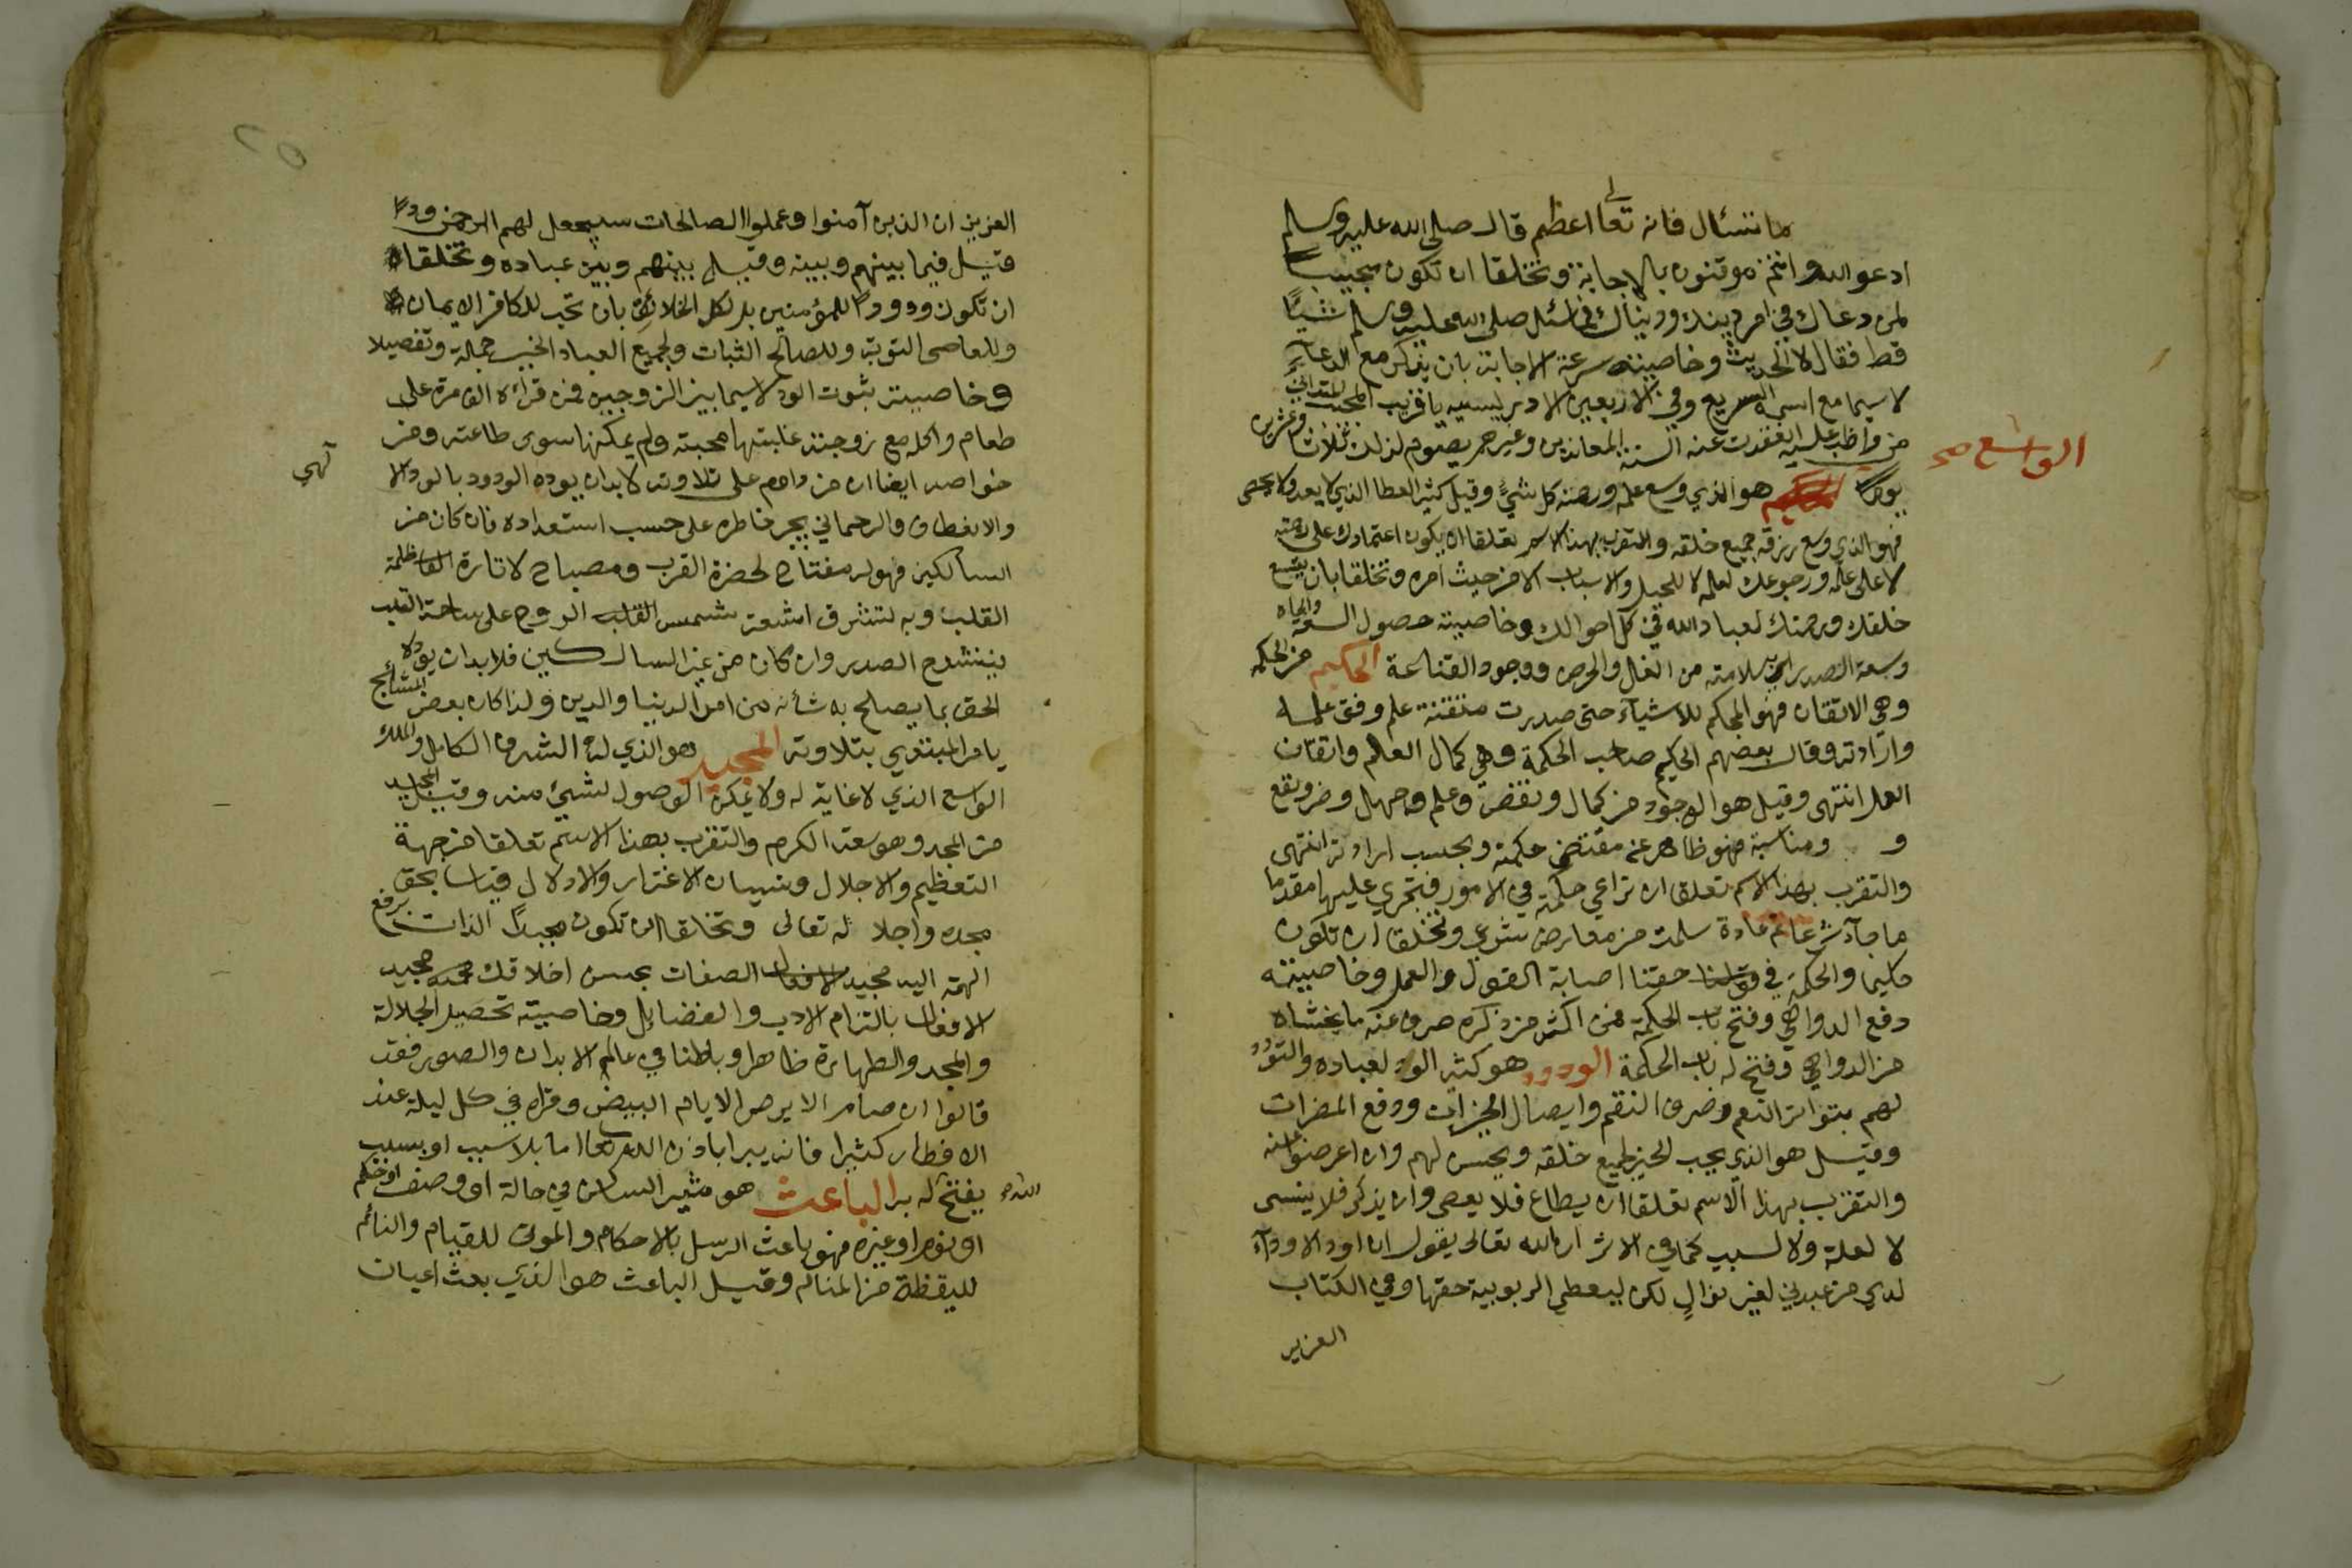 ما تسئال فانه تعالى اعظم قال صلى الله عليه وسلم
ادعو الله وانتم موقنون بالاجابة وتخلقا ان تكون مجيبا
لمن دعاك في امر دينك ودنياك فما سئل صلى الله عليه وسلم شيئا
قط فقال لا الحديث وخاصيته سرعة الاجابة بان يذكر مع الدعاء
لاسيما مع اسمه السريع وفي الاربعين الادريسيه يا قريب المجيب المتداني
من واظب عليه انعقدت عنه السنة المعاندين وغيرهم يصوم لذلك ثلاثا وعشرين
الواسع صح
يوما هو الذي وسع علمه ورحمته كل شيء وقيل كثير العطا الذي لا يعد ولا يحصى
فهو الذي وسع رزقه جميع خلقه والتقرب بهذا الاسم تعلقا ان يكون اعتمادك على رحمته
لا على علمه ورجوعك لعلمه لا للحيل والاسباب الا من حيث امره وتخلقا بان يتسع
خلقك ورحمتك لعباد الله في كل احوالك وخاصيته حصول السعة والجاه
وسعة الصدر اي سلامته من الغل والحرص ووجود القناعة الحكيم من الحكمه
وهي الاتقان فهو المحكم للاشياء حتى صدرت متقنة علم وفق علمه
وارادته وقال بعضهم الحكيم صاحب الحكمة وهي كمال العلم واتقان
العمل انتهى وقيل هو الوجود من كمال ونقض وعلم وجهل وضر ونفع
و ومناسبة فهو ظاهر عنه مقتضى حكمته وبحسب ارادته انتهى
والتقرب بهذا الاسم تعلقا ان تراعي حكمته في الامور فتجري عليها مقدما
ما جآء شرعا ثم عادة سلمت من معارض شرعي وتخلقا ان تكون
حكيما والحكمة في حقنا اصابة القول والعمل وخاصيته
دفع الدواهي وفتح باب الحكمة فمن اكثر من ذكره صرف عنه ما يخشاه
من الدواهي وفتح له باب الحكمة الودود هو كثير الود لعباده والتودد
لهم بتواتر النعم وصرف النقم وايصال الخيرات ودفع المضرات
وقيل هو الذي يحب الخير لجميع خلقه ويحسن لهم وان اعرضوا عنه
والتقرب بهذا الاسم تعلقا ان يطاع فلا يعصى وان يذكر فلا ينسى
لا لعلة ولا لسبب كما في الاثر ان الله تعالى يقول ان اود الاودآء
لدي من عبدني لغير نوال لكن ليعطي الربوبية حقها وفي الكتاب
العزيز
العزيز ان الذين آمنوا وعملوا الصالحات سيجعل لهم الرحمن ودا
قيل فيما بينهم وبينه وقيل بينهم وبين عباده وتخلقا
ان تكون ودودا للمؤمنين بل لكل الخلائق بان تحب للكافر الايمان
وللعاصي التوبة وللصالح الثبات ولجميع العباد الخير جملة وتفصيلا
وخاصيته ثبوت الود لاسيما بين الزوجين فمن قراءه الف مرة على
طعام واكله مع زوجته غلبتها محبته ولم يمكنها سوى طاعته ومن
خواصه ايضا ان من داوم على تلاوته لابد ان يوده الودود بالود الا
لهي
والانعطاف والرحماني بجبر خاطره على حسب استعداده فان كان من
السالكين فهو له مفتاح لحضرة القرب ومصباح لانارة ظلمة
القلب وبه تشرق اشعة شمس القلب الروح على ساحة القلب
فينشرح الصدر وان كان من غير السالكين فلابد ان يوده
الحق بما يصلح به شأنه من امر الدنيا والدين ولذا كان بعض المشائخ
يامر المبتدي بتلاوته المجيد هو الذي له الشرف الكامل والملك
الواسع الذي لا غاية له ولا يمكن الوصول لشيئ منه وقيل المجيد
من المجد وهو سعة الكرم والتقرب بهذا الاسم تعلقا من جهة
التعظيم والاجلال ونسيان الاغترار والادلال قياسا بحق
مجده واجلا له تعالى وتخلقا ان تكون مجيدا الذات برفع
الهمة اليه مجيد الافعال الصفات بحسن اخلاقك مجيد
الافعال بالتزام الادب والفضايل وخاصيته تحصيل الجلالة
والمجد والطهارة ظاهرا وباطنا في عالم الابدان والصور فقد
قالوا ان صام الابرص الايام البيض وقراه في كل ليلة عند
الافطار كثيرا فانه يبرا باذن الله تعالى اما بلا سبب او بسبب
يفتح له به الباعث هو مثير الساكن في حالة او وصف او حكم
الله
او نوم او غيره فهو باعث الرسل بالاحكام والموتى للقيام والنائم
لليقظة من المنام وقيل الباعث هو الذي بعث اعيان